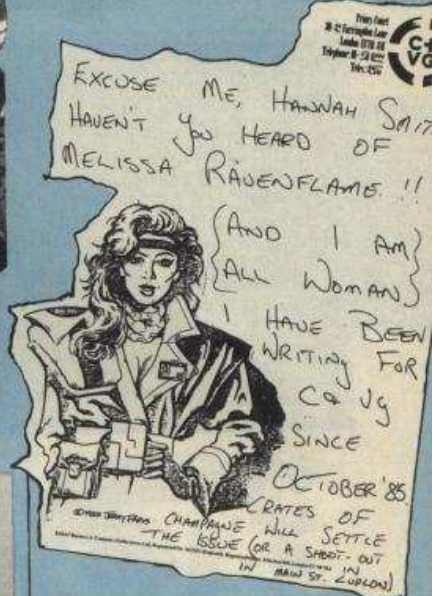 Priory Court
30-32 Farringdon Lane
London EC1R 3AU
C+
VG
EXCUSE ME, HANNAH SMITH
HAVEN'T YOU HEARD OF
MELISSA RAVENFLAME !!
(AND I AM)
(ALL WOMAN)
I HAVE BEEN
WRITING FOR
C & VG
SINCE
OCTOBER '85.
CRATES OF
CHAMPAGNE WILL SETTLE
THE ISSUE (OR A SHOOT-OUT
IN MAIN ST. LUDLOW)